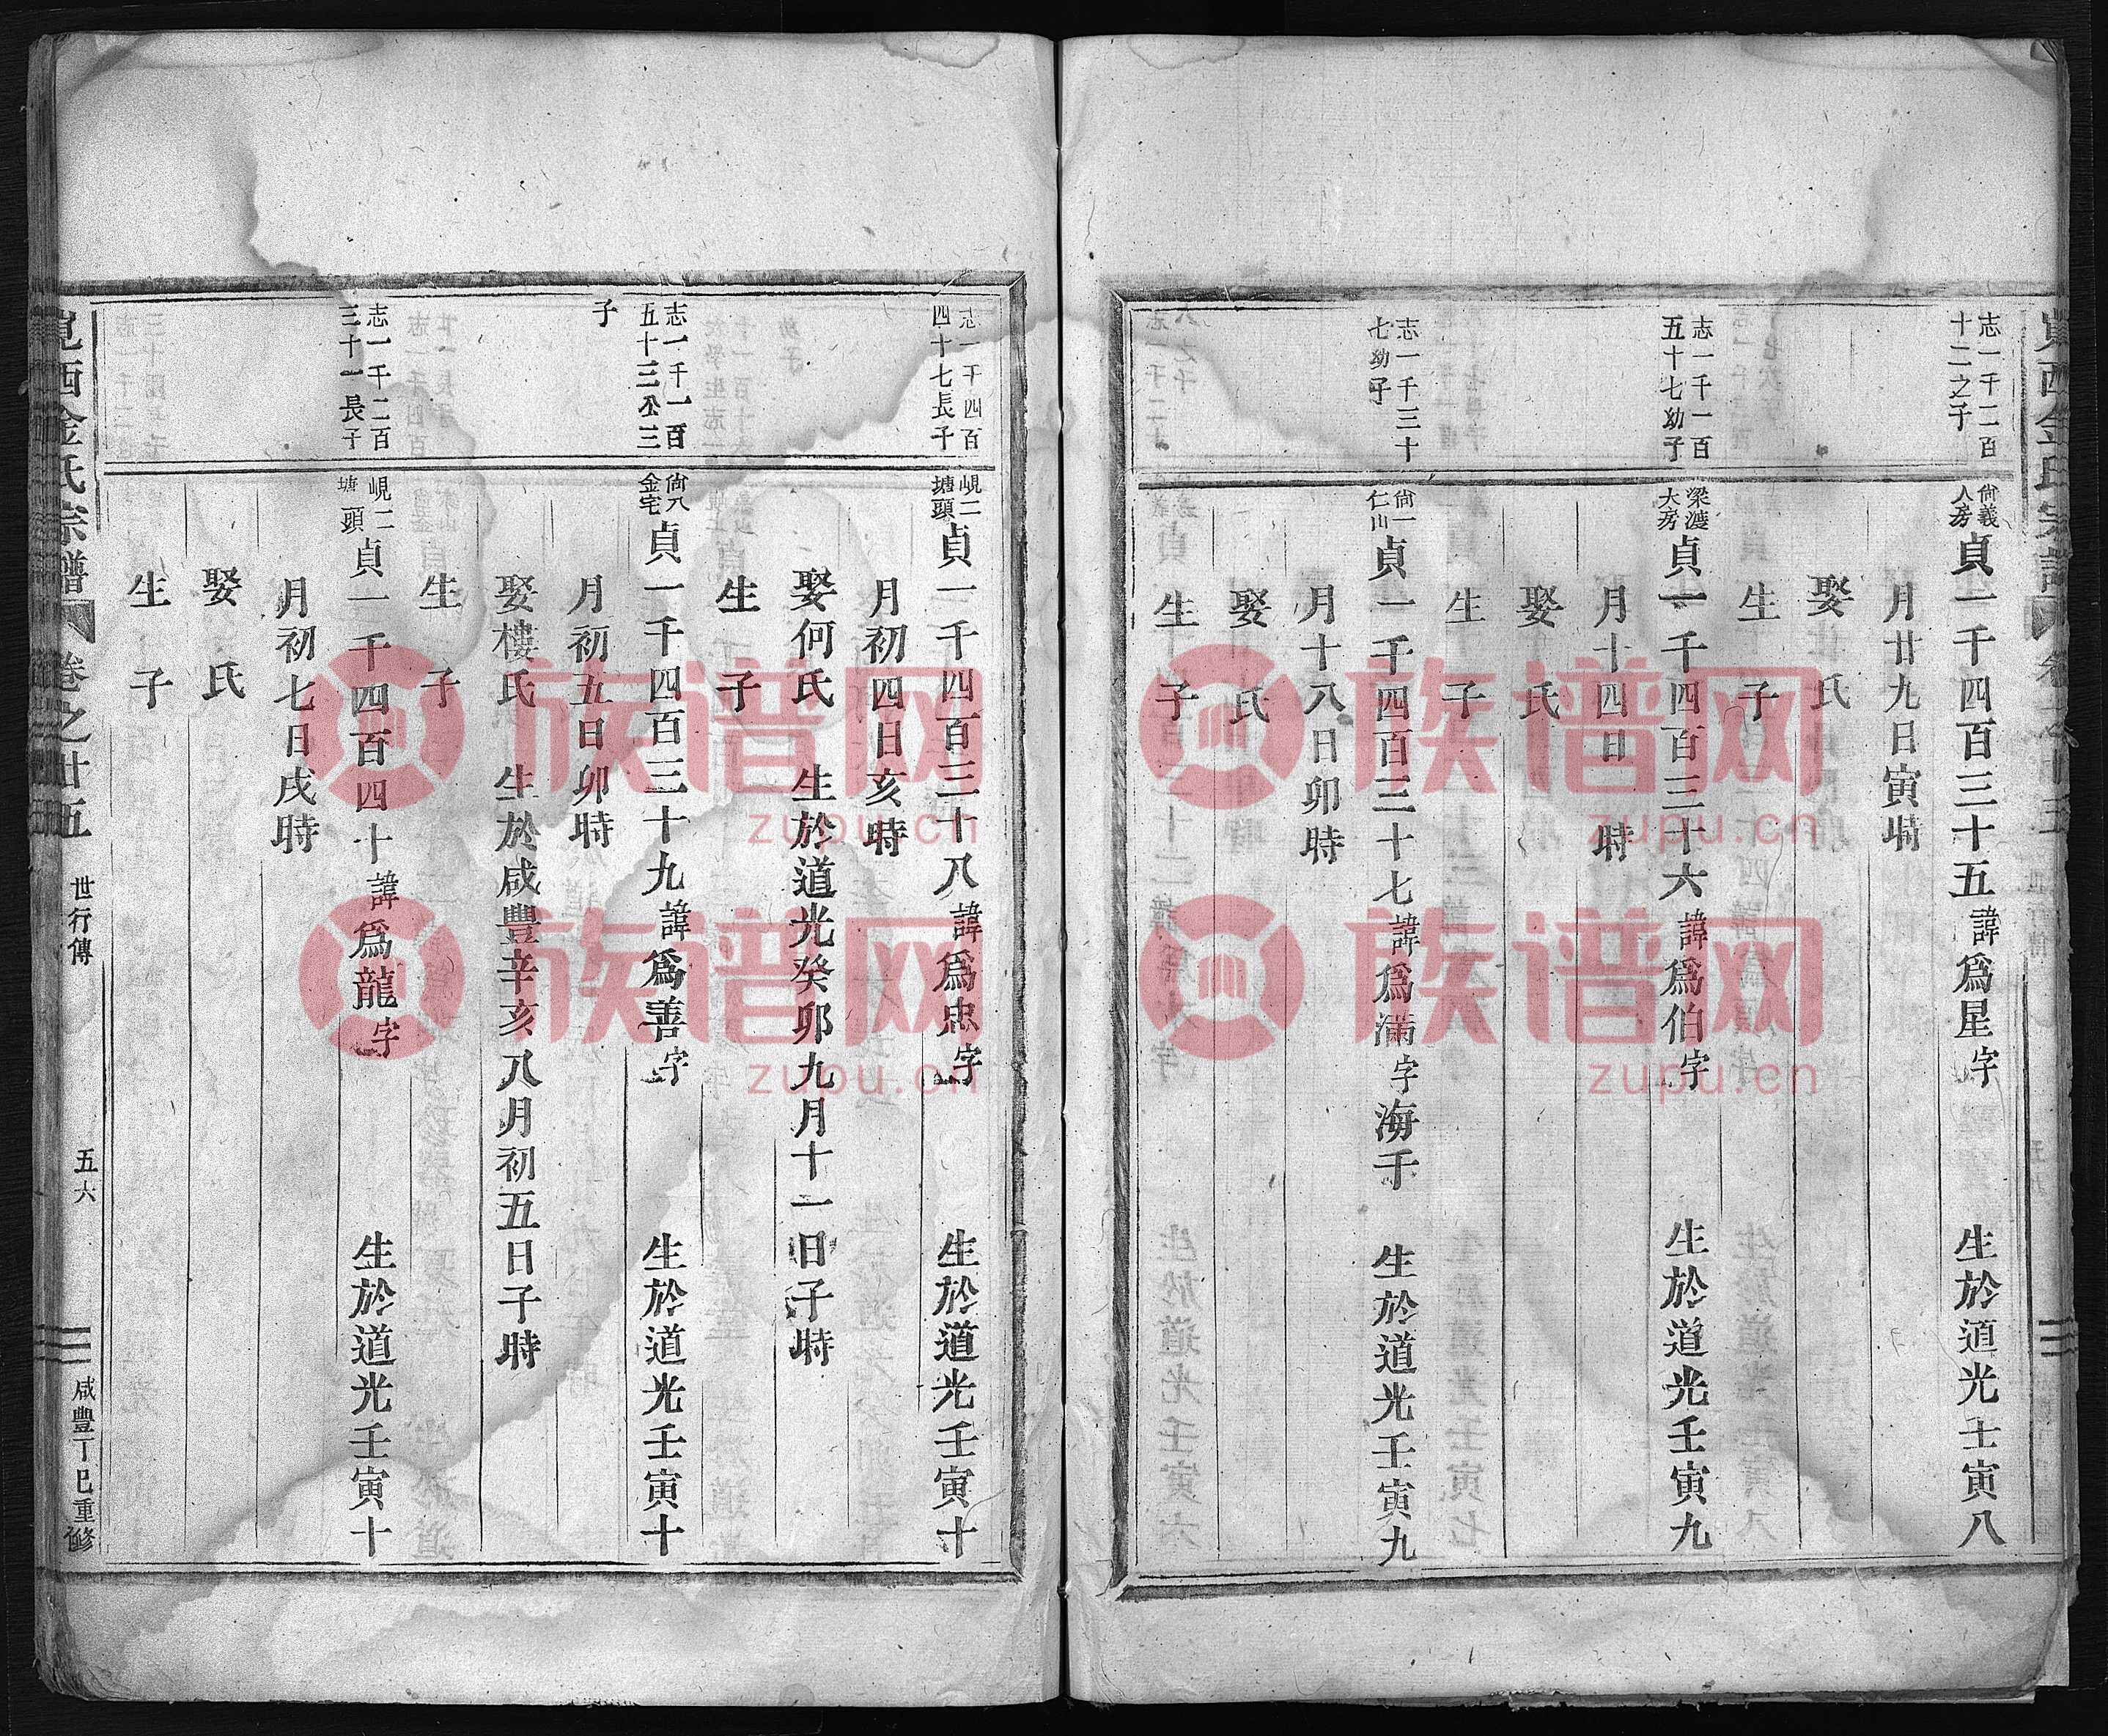 志一千二百
十二之子
尙義
人房
貞一千四百三十五諱爲星字 生於道光壬寅八
月廿九日寅時
娶 氏
生 子
志一千一百
五十七幼子
梁漣
大房
貞一千四百三十六諱爲伯字 生於道光壬寅九
月十四日 時
娶 氏
生 子
志一千三十
七幼子
尙一
仁山
貞一千四百三十七諱爲滿字海千 生於道光壬寅九
月十八日卯時
娶 氏
生 子
志一千四百
四十七長子
峴二
塘頭
貞一千四百三十八諱爲忠字 生於道光壬寅十
月初四日亥時
娶何氏 生於道光癸卯九月十一日子時
生 子
志一千一百
五十三公三
子
尙八
金宅
貞一千四百三十九諱爲善字 生於道光壬寅十
月初五日卯時
娶樓氏 生於咸豐辛亥八月初五日子時
生 子
志一千二百
三十一長子
峴二
塘頭
貞一千四百四十諱爲龍字 生於道光壬寅十
月初七日戌時
娶 氏
生 子
西金氏宗譜 卷之廿五 世行傳 五六 咸豐丁巳重修
族谱网
zupu.cn
族谱网
zupu.cn
族谱网
zupu.cn
族谱网
zupu.cn